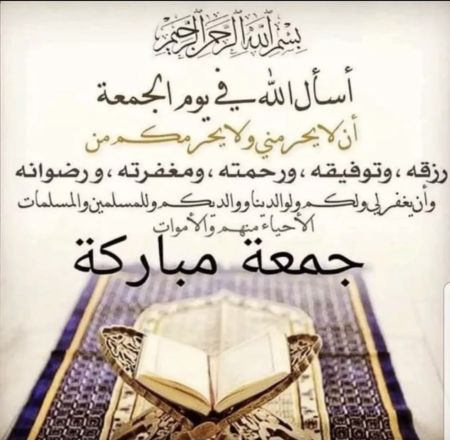 بسم الله الرحمن الرحيم
أسأل الله في يوم الجمعة
أن لا يحرمني ولا يحرمكم من
رزقه ، وتوفيقه ، ورحمته ، ومغفرته ، ورضوانه
وأن يغفر لي ولكم ولوالدينا ووالديكم وللمسلمين والمسلمات
الأحياء منهم والأموات
جمعة مباركة